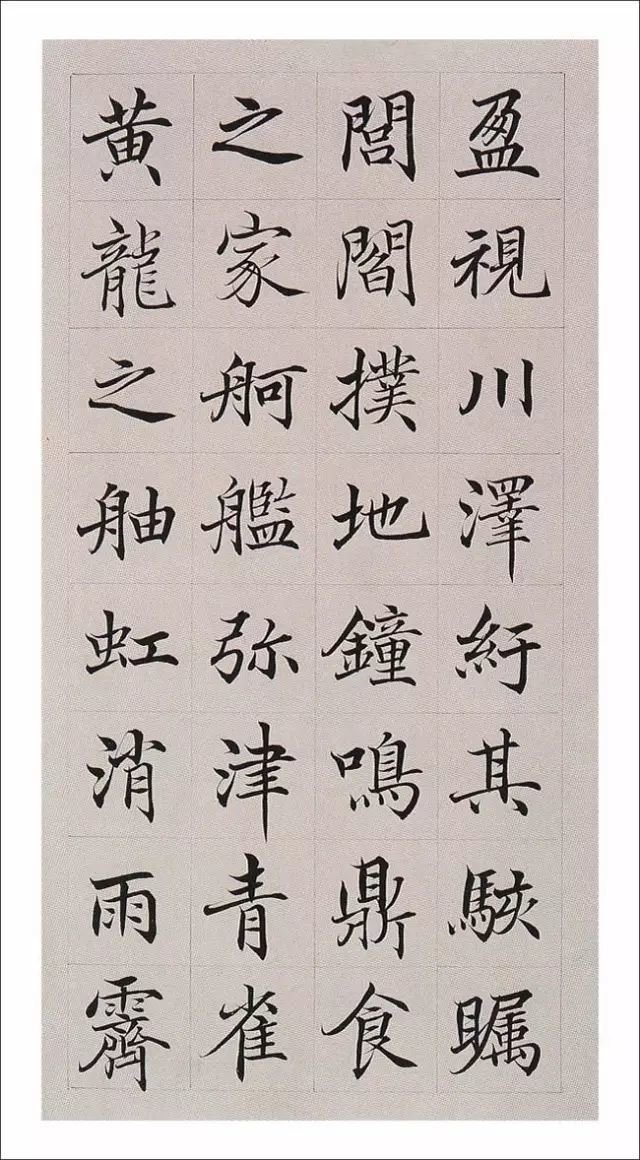 盈視川澤紆其駭瞩
閭閻撲地鐘鳴鼎食
之家舸艦弥津青雀
黄龍之舳虹消雨霽